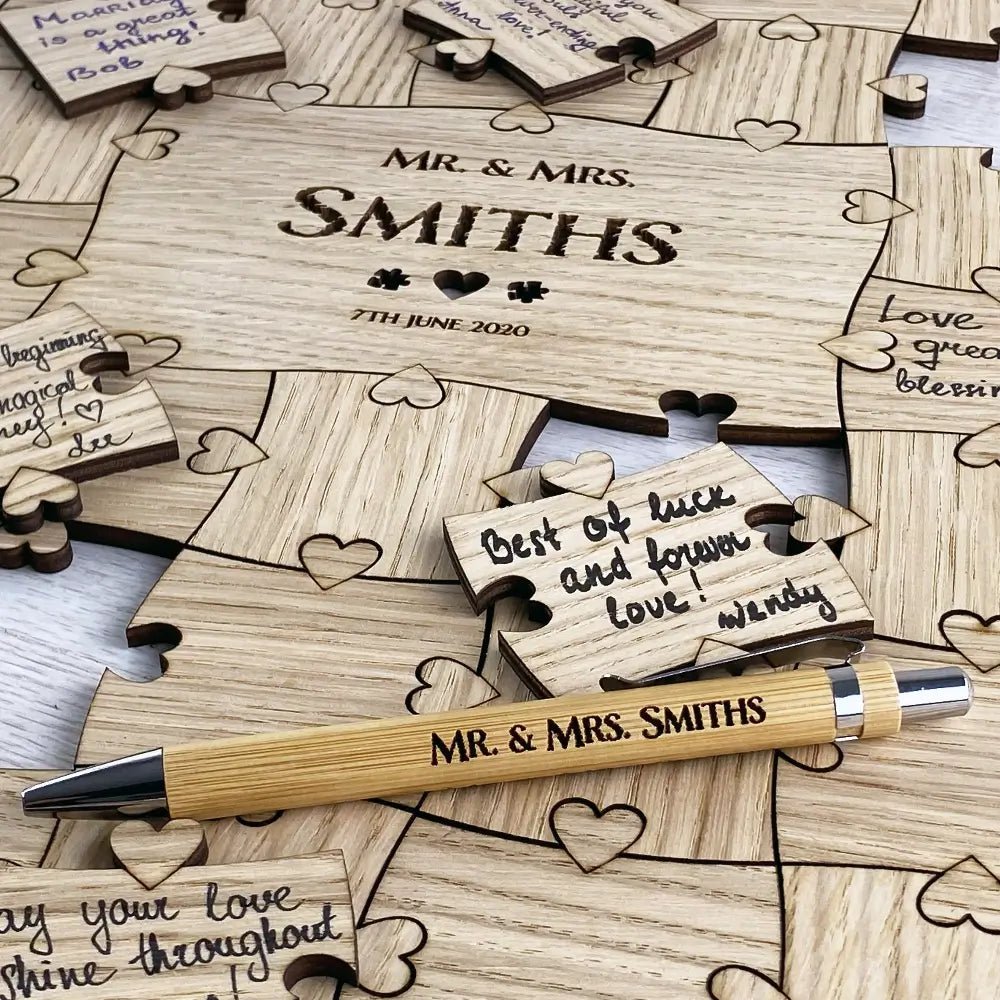 Marriage
is a great
thing!
Bob
you
love!
Anna
never-ending
MR. & MRS.
SMITHS
7TH JUNE 2020
beginning
magical
Lee
Love
great
Best of luck
and forever
love!
Wendy
MR. & MRS. SMITHS
ay your love
shine throughout